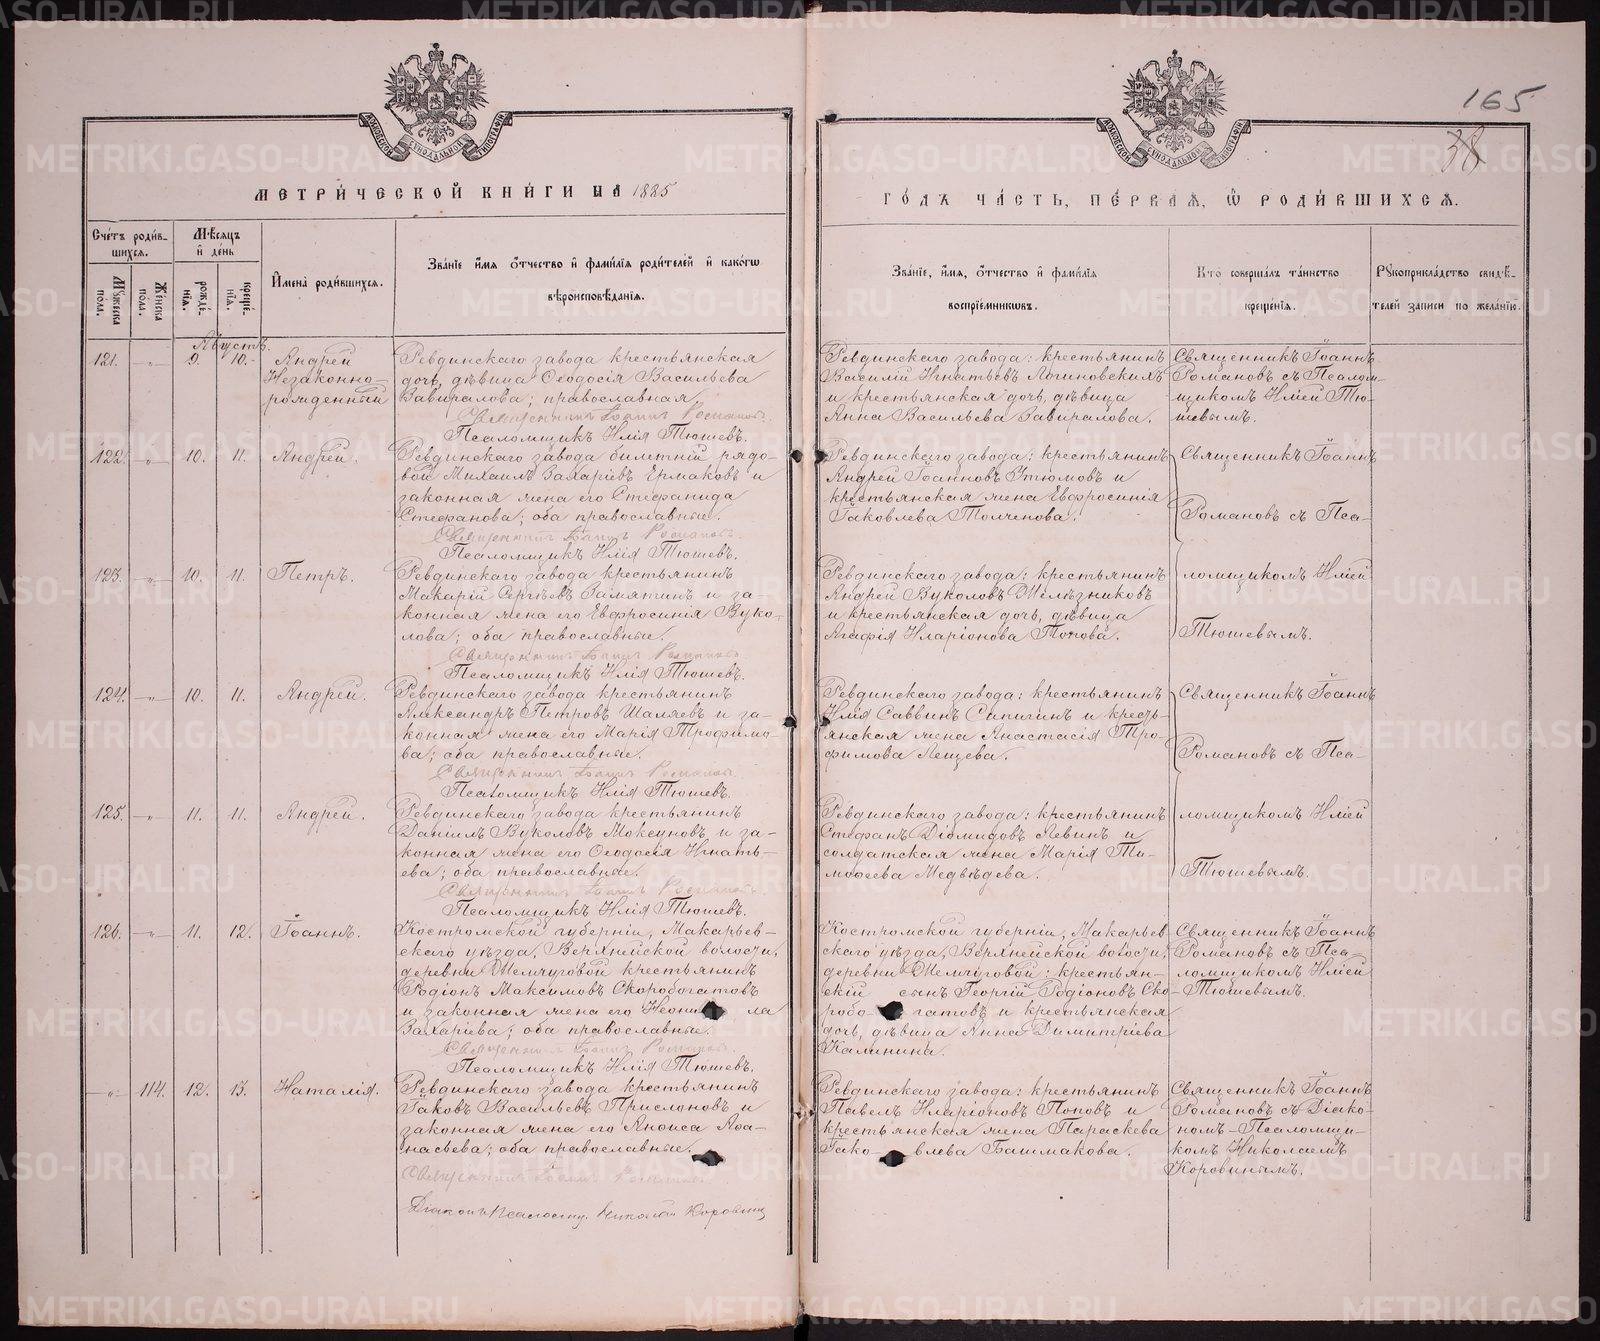 165
38
МОСКОВСКОЙ СѴНОДАЛЬНОЙ ТИПОГРАФІИ
МОСКОВСКОЙ СѴНОДАЛЬНОЙ ТИПОГРАФІИ
МЕТРИ́ЧЕСКОЙ КНИ́ГИ НА 1885
ГО́ДЪ ЧА́СТЬ, ПЕ́РВАѦ, Ѡ РОДИ́ВШИХСѦ.
Сче́тъ роди́в-
шихсѧ.
Мꙋжеска пола.
Женска пола.
Мѣсѧцъ
и де́нь
рожде́-
нїѧ.
креще́-
нїѧ.
И҆мена̀ роди́вшихсѧ.
Зва́нїе и҆́мѧ ѻ҆́тчество и҆ фами́лїѧ роди́телей и҆ како́гѡ
вѣроисповѣ́данїѧ.
Зва́нїе, и҆́мѧ, ѻ҆́тчество и҆ фами́лїѧ
воспрїе́мникѡвъ.
Кто̀ соверша́лъ та́инство
креще́нїѧ.
Рꙋкоприкла́дство свидѣ́-
телей за́писи по жела́нїю.
Августъ.
121. —„— 9. 10. Андрей
Незаконно-
рожденный
Ревдинскаго завода крестьянская
дочь, дѣвица Ѳеодосія Васильева
Завиралова; православная.
Священникъ Іоаннъ Романовъ.
Псаломщикъ Илія Тюшевъ.
Ревдинскаго завода: крестьянинъ
Василій Игнатьевъ Логиновскихъ
и крестьянская дочь, дѣвица
Анна Васильева Завиралова.
Священникъ Іоаннъ
Романовъ съ Псалом-
щикомъ Иліей Тю-
шевымъ.
122. —„— 10. 11. Андрей.
Ревдинскаго завода билетный рядо-
вой Михаилъ Захаріевъ Ермаковъ и
законная жена его Стефанида
Стефанова; оба православные.
Священникъ Іоаннъ Романовъ.
Псаломщикъ Илія Тюшевъ.
Ревдинскаго завода: крестьянинъ
Андрей Іоанновъ Утюмовъ и
крестьянская жена Евфросинія
Іаковлева Толченова.
Священникъ Іоаннъ
Романовъ съ Пса-
123. —„— 10. 11. Петръ.
Ревдинскаго завода крестьянинъ
Макарій Сергѣевъ Замятинъ и за-
конная жена его Евфросинія Вуко-
лова; оба православные.
Священникъ Іоаннъ Романовъ
Псаломщикъ Илія Тюшевъ.
Ревдинскаго завода: крестьянинъ
Андрей Вуколовъ Желѣзниковъ
и крестьянская дочь, дѣвица
Агафія Иларіонова Попова.
ломщикомъ Иліей
Тюшевымъ.
124. —„— 10. 11. Андрей.
Ревдинскаго завода крестьянинъ
Александръ Петровъ Шаляевъ и за-
конная жена его Марія Трофимо-
ва; оба православные.
Священникъ Іоаннъ Романовъ
Псаломщикъ Илія Тюшевъ.
Ревдинскаго завода: крестьянинъ
Илія Саввинъ Сипигинъ и кресть-
янская жена Анастасія Тро-
фимова Лещева.
Священникъ Іоаннъ
Романовъ съ Пса-
125. —„— 11. 11. Андрей.
Ревдинскаго завода крестьянинъ
Даніилъ Вуколовъ Мокеуновъ и за-
конная жена его Ѳеодосія Игнать-
ева; оба православные.
Священникъ Іоаннъ Романовъ.
Псаломщикъ Илія Тюшевъ.
Ревдинскаго завода: крестьянинъ
Стефанъ Діомидовъ Левинъ и
солдатская жена Марія Ти-
моѳеева Медвѣдева.
ломщикомъ Иліей
Тюшевымъ.
126. —„— 11. 12. Іоаннъ.
Костромской губерніи, Макарьев-
скаго уѣзда, Верхнейской волости,
деревни Жемчуговой крестьянинъ
Родіонъ Максимовъ Скоробогатовъ
и законная жена его Неони ла
Захаріева; оба православные.
Священникъ Іоаннъ Романовъ
Псаломщикъ Илія Тюшевъ.
Костромской губерніи, Макарьев
скаго уѣзда, Верхнейской волости,
деревни Жемчуговой: крестьян-
скій сынъ Георгій Родіоновъ Ско-
робо- гатовъ и крестьянская
дочь, дѣвица Анна Димитріева
Калинина.
Священникъ Іоаннъ
Романовъ съ Пса-
ломщикомъ Иліей
Тюшевымъ.
—„— 114. 12. 13. Наталія.
Ревдинскаго завода крестьянинъ
Іаковъ Васильевъ Прислоновъ и
законная жена его Анѳиса Аѳа-
насьева; оба православные.
Священникъ Іоаннъ Романовъ
Діаконъ Псаломщ. Николай Коровинъ
Ревдинскаго завода: крестьянинъ
Павелъ Иларіоновъ Поповъ и
крестьянская жена Параскева
Іако- влева Башмакова.
Священникъ Іоаннъ
Романовъ съ Діако-
номъ-Псаломщи-
комъ Николаемъ
Коровинымъ.
METRIKI.GASO-URAL.RU